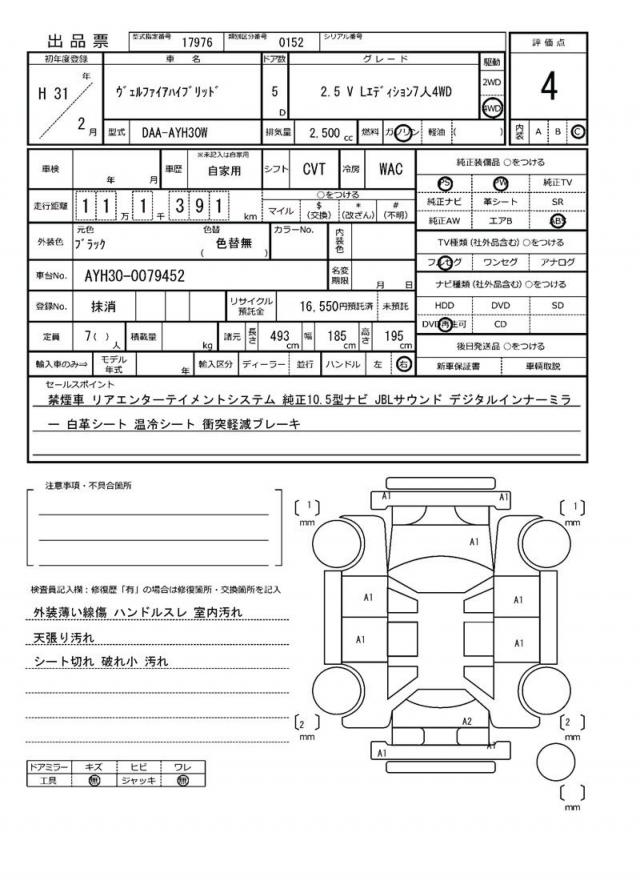 出品票 型式指定番号 17976 類別区分番号 0152 シリアル番号
初年度登録 車 名 ドア数 グレード 駆動 評価点
H 31 年 2 月 ヴェルファイアハイブリッド 5 D 2.5 V Lエディション7人4WD 2WD 4WD 4
型式 DAA-AYH30W 排気量 2,500 cc 燃料 ガソリン 軽油 ( ) 内装 A B C
車検 年 月 車歴 ※未記入は自家用 自家用 シフト CVT 冷房 WAC
走行距離 1 1 万 1 千 3 9 1 km ○をつける マイル $ (交換) * (改ざん) # (不明)
外装色 元色 ブラック 色替 ( 色替無 ) カラーNo. 内装色
車台No. AYH30-0079452 名変期限 月 日
登録No. 抹消 リサイクル預託金 16,550円預託済 未預託
定員 7( ) 人 積載量 kg 諸元 長さ 493 cm 幅 185 cm 高さ 195 cm
輸入車のみ⇒ モデル年式 年 輸入区分 ディーラー 並行 ハンドル 左 右
純正装備品 ○をつける
PS PW 純正TV
純正ナビ 革シート SR
純正AW エアB ABS
TV種類(社外品含む) ○をつける
フルセグ ワンセグ アナログ
ナビ種類(社外品含む) ○をつける
HDD DVD SD
DVD再生可 CD
後日発送品 ○をつける
新車保証書 車輌取説
セールスポイント
禁煙車 リアエンターテイメントシステム 純正10.5型ナビ JBLサウンド デジタルインナーミラ
ー 白革シート 温冷シート 衝突軽減ブレーキ
注意事項・不具合箇所
検査員記入欄：修復歴「有」の場合は修復箇所・交換箇所を記入
外装薄い線傷 ハンドルスレ 室内汚れ
天張り汚れ
シート切れ 破れ小 汚れ
ドアミラー キズ ヒビ ワレ
工具 無 ジャッキ 無
A1 A1
[ 1 ] mm [ 1 ] mm
A1
A1 A1
A1 A1
A2
[ 2 ] mm [ 2 ] mm
A1 A1
[ ] mm